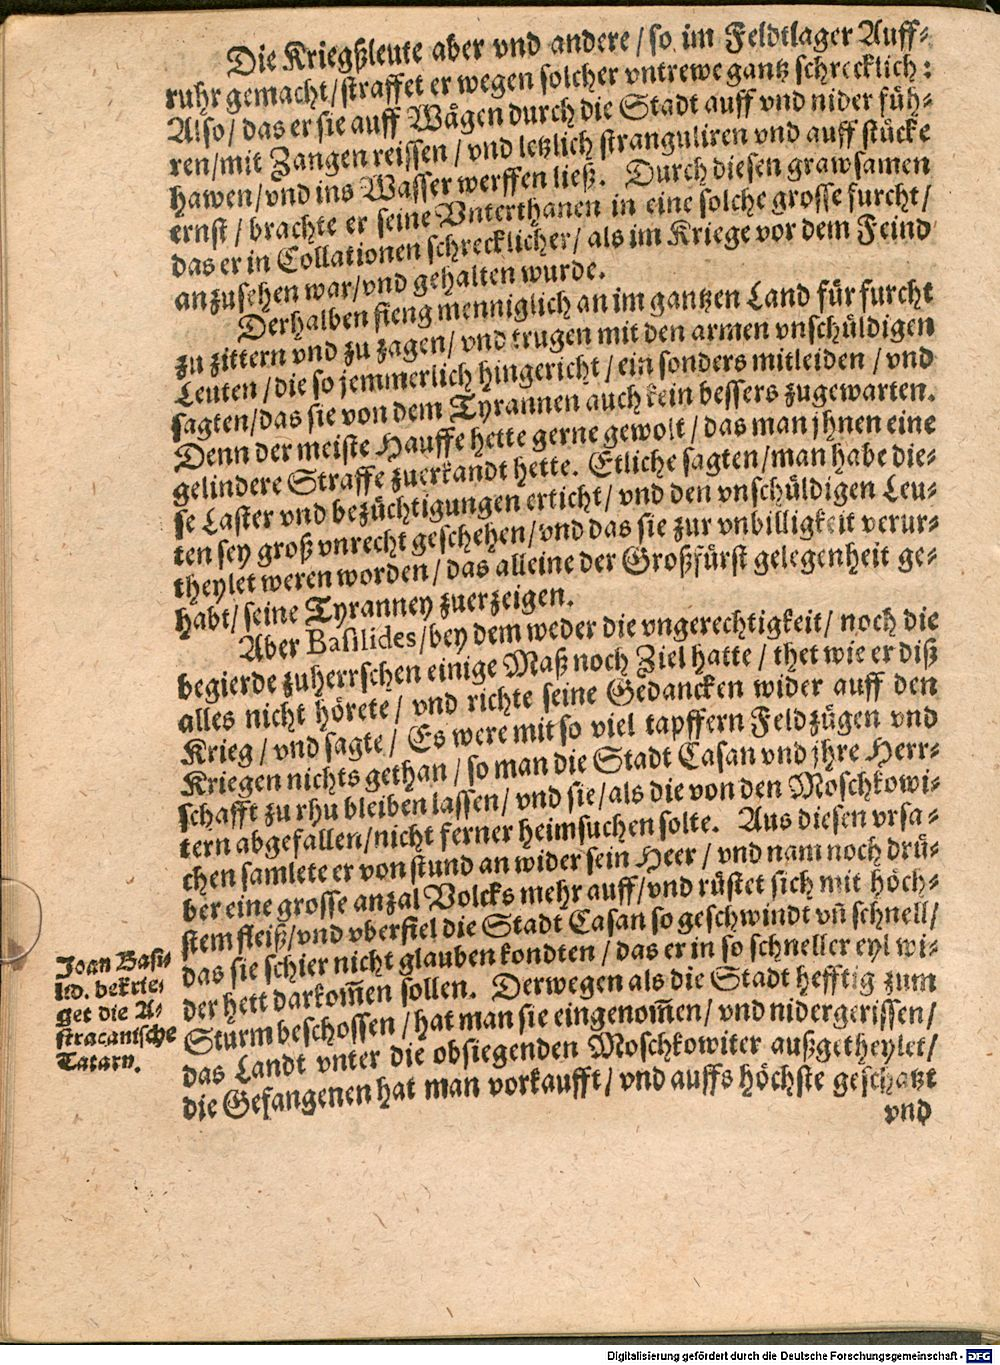 Die Kriegßleute aber vnd andere / so im Feldtlager Auff-
ruhr gemacht / straffet er wegen solcher vntrewe gantz schrecklich:
Also / das er sie auff Wägen durch die Stadt auff vnd nider füh-
ren / mit Zangen reissen / vnd letzlich stranguliren vnd auff stücke
hawen / vnd ins Wasser werffen ließ. Durch diesen grawsamen
ernst / brachte er seine Vnterthanen in eine solche grosse furcht /
das er in Collationen schrecklicher / als im Kriege vor dem Feind
anzusehen war / vnd gehalten wurde.
Derhalben fieng menniglich an im gantzen Land für furcht
zu zittern vnd zu zagen / vnd trugen mit den armen vnschüldigen
Leuten / die so jemmerlich hingericht / ein sonders mitleiden / vnd
sagten / das sie von dem Tyrannen auch kein bessers zugewarten.
Denn der meiste Hauffe hette gerne gewolt / das man jhnen eine
gelindere Straffe zuerkandt hette. Etliche sagten / man habe die-
se Laster vnd bezüchtigungen erticht / vnd den vnschüldigen Leu-
ten sey groß vnrecht geschehen / vnd das sie zur vnbilligkeit verur-
theylet weren worden / das alleine der Großfürst gelegenheit ge-
habt / seine Tyranney zuerzeigen.
Aber Basilides / bey dem weder die vngerechtigkeit / noch die
begierde zuherrschen einige Maß noch Ziel hatte / thet wie er diß
alles nicht hörete / vnd richte seine Gedancken wider auff den
Krieg / vnd sagte / Es were mit so viel tapffern Feldzügen vnd
Kriegen nichts gethan / so man die Stadt Casan vnd jhre Herr-
schafft zu rhu bleiben lassen / vnd sie / als die von den Moschkowi-
tern abgefallen / nicht ferner heimsuchen solte. Aus diesen vrsa-
chen samlete er von stund an wider sein Heer / vnd nam noch drü-
ber eine grosse anzal Volcks mehr auff / vnd rüstet sich mit höch-
stem fleiß / vnd vberfiel die Stadt Casan so geschwindt vñ schnell /
das sie schier nicht glauben kondten / das er in so schneller eyl wi-
der hett darkom̃en sollen. Derwegen als die Stadt hefftig zum
Sturm beschossen / hat man sie eingenom̃en / vnd nidergerissen /
das Landt vnter die obsiegenden Moschkowiter außgetheylet /
die Gefangenen hat man vorkaufft / vnd auffs höchste geschatzt
vnd
Joan Basi-
lid. bekrie-
get die A-
stracanische
Tatarn.
Digitalisierung gefördert durch die Deutsche Forschungsgemeinschaft - DFG